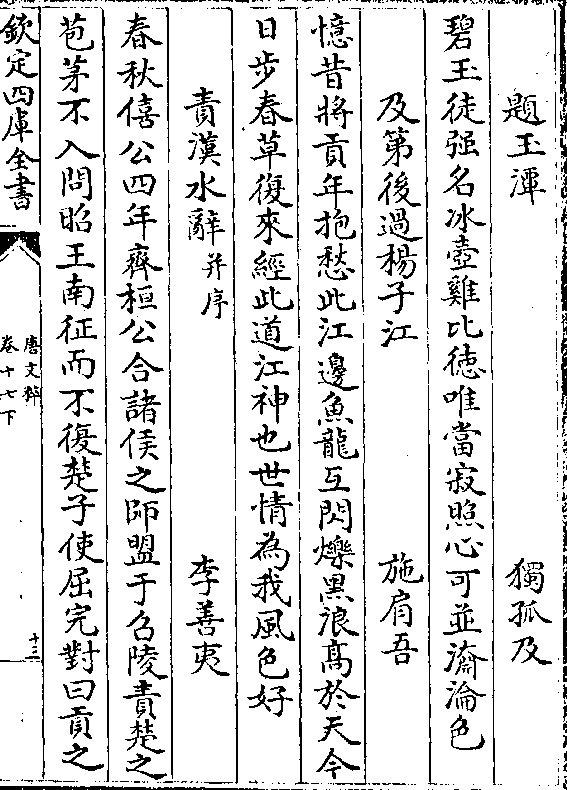 題玉潭 獨孤及
碧玉徒强名冰壺難比徳唯當寂照心可並瀹淪色
及第後過楊子江 施肩吾
憶昔將貢年抱愁此江邊魚龍互閃爍黒浪髙於天今
日步春草復來經此道江神也世情為我風色好
責漢水辭并序 李善夷
春秋僖公四年齊桓公合諸侯之師盟于召陵責楚之
苞茅不入問昭王南征而不復楚子使屈完對曰貢之
欽定四庫全書
唐文粹
卷十七下
十三